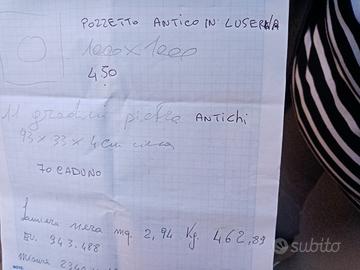 POZZETTO ANTICO IN LUSERNA
1000 x 1000
450
11 gradini pietra ANTICHI
93 x 33 x 4 cm circa
70 CADUNO
Lamiera nera mq. 2,94 Kg. 462,89
EU. 943.488
misura
subito